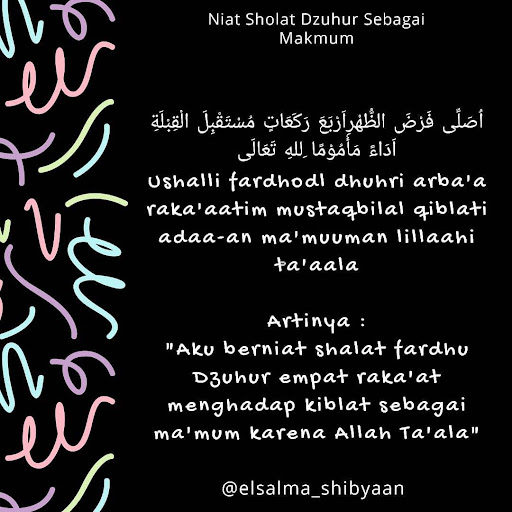 Niat Sholat Dzuhur Sebagai
Makmum
اُصَلِّى فَرْضَ الظُّهْرِاَرْبَعَ رَكَعَاتٍ مُسْتَقْبِلَ الْقِبْلَةِ
اَدَاءً مَأْمُوْمًا ِللهِ تَعَالَى
Ushalli fardhodl dhuhri arba'a
raka'aatim mustaqbilal qiblati
adaa-an ma'muuman lillaahi
ta'aala
Artinya :
"Aku berniat shalat fardhu
Dzuhur empat raka'at
menghadap kiblat sebagai
ma'mum karena Allah Ta'ala"
@elsalma_shibyaan